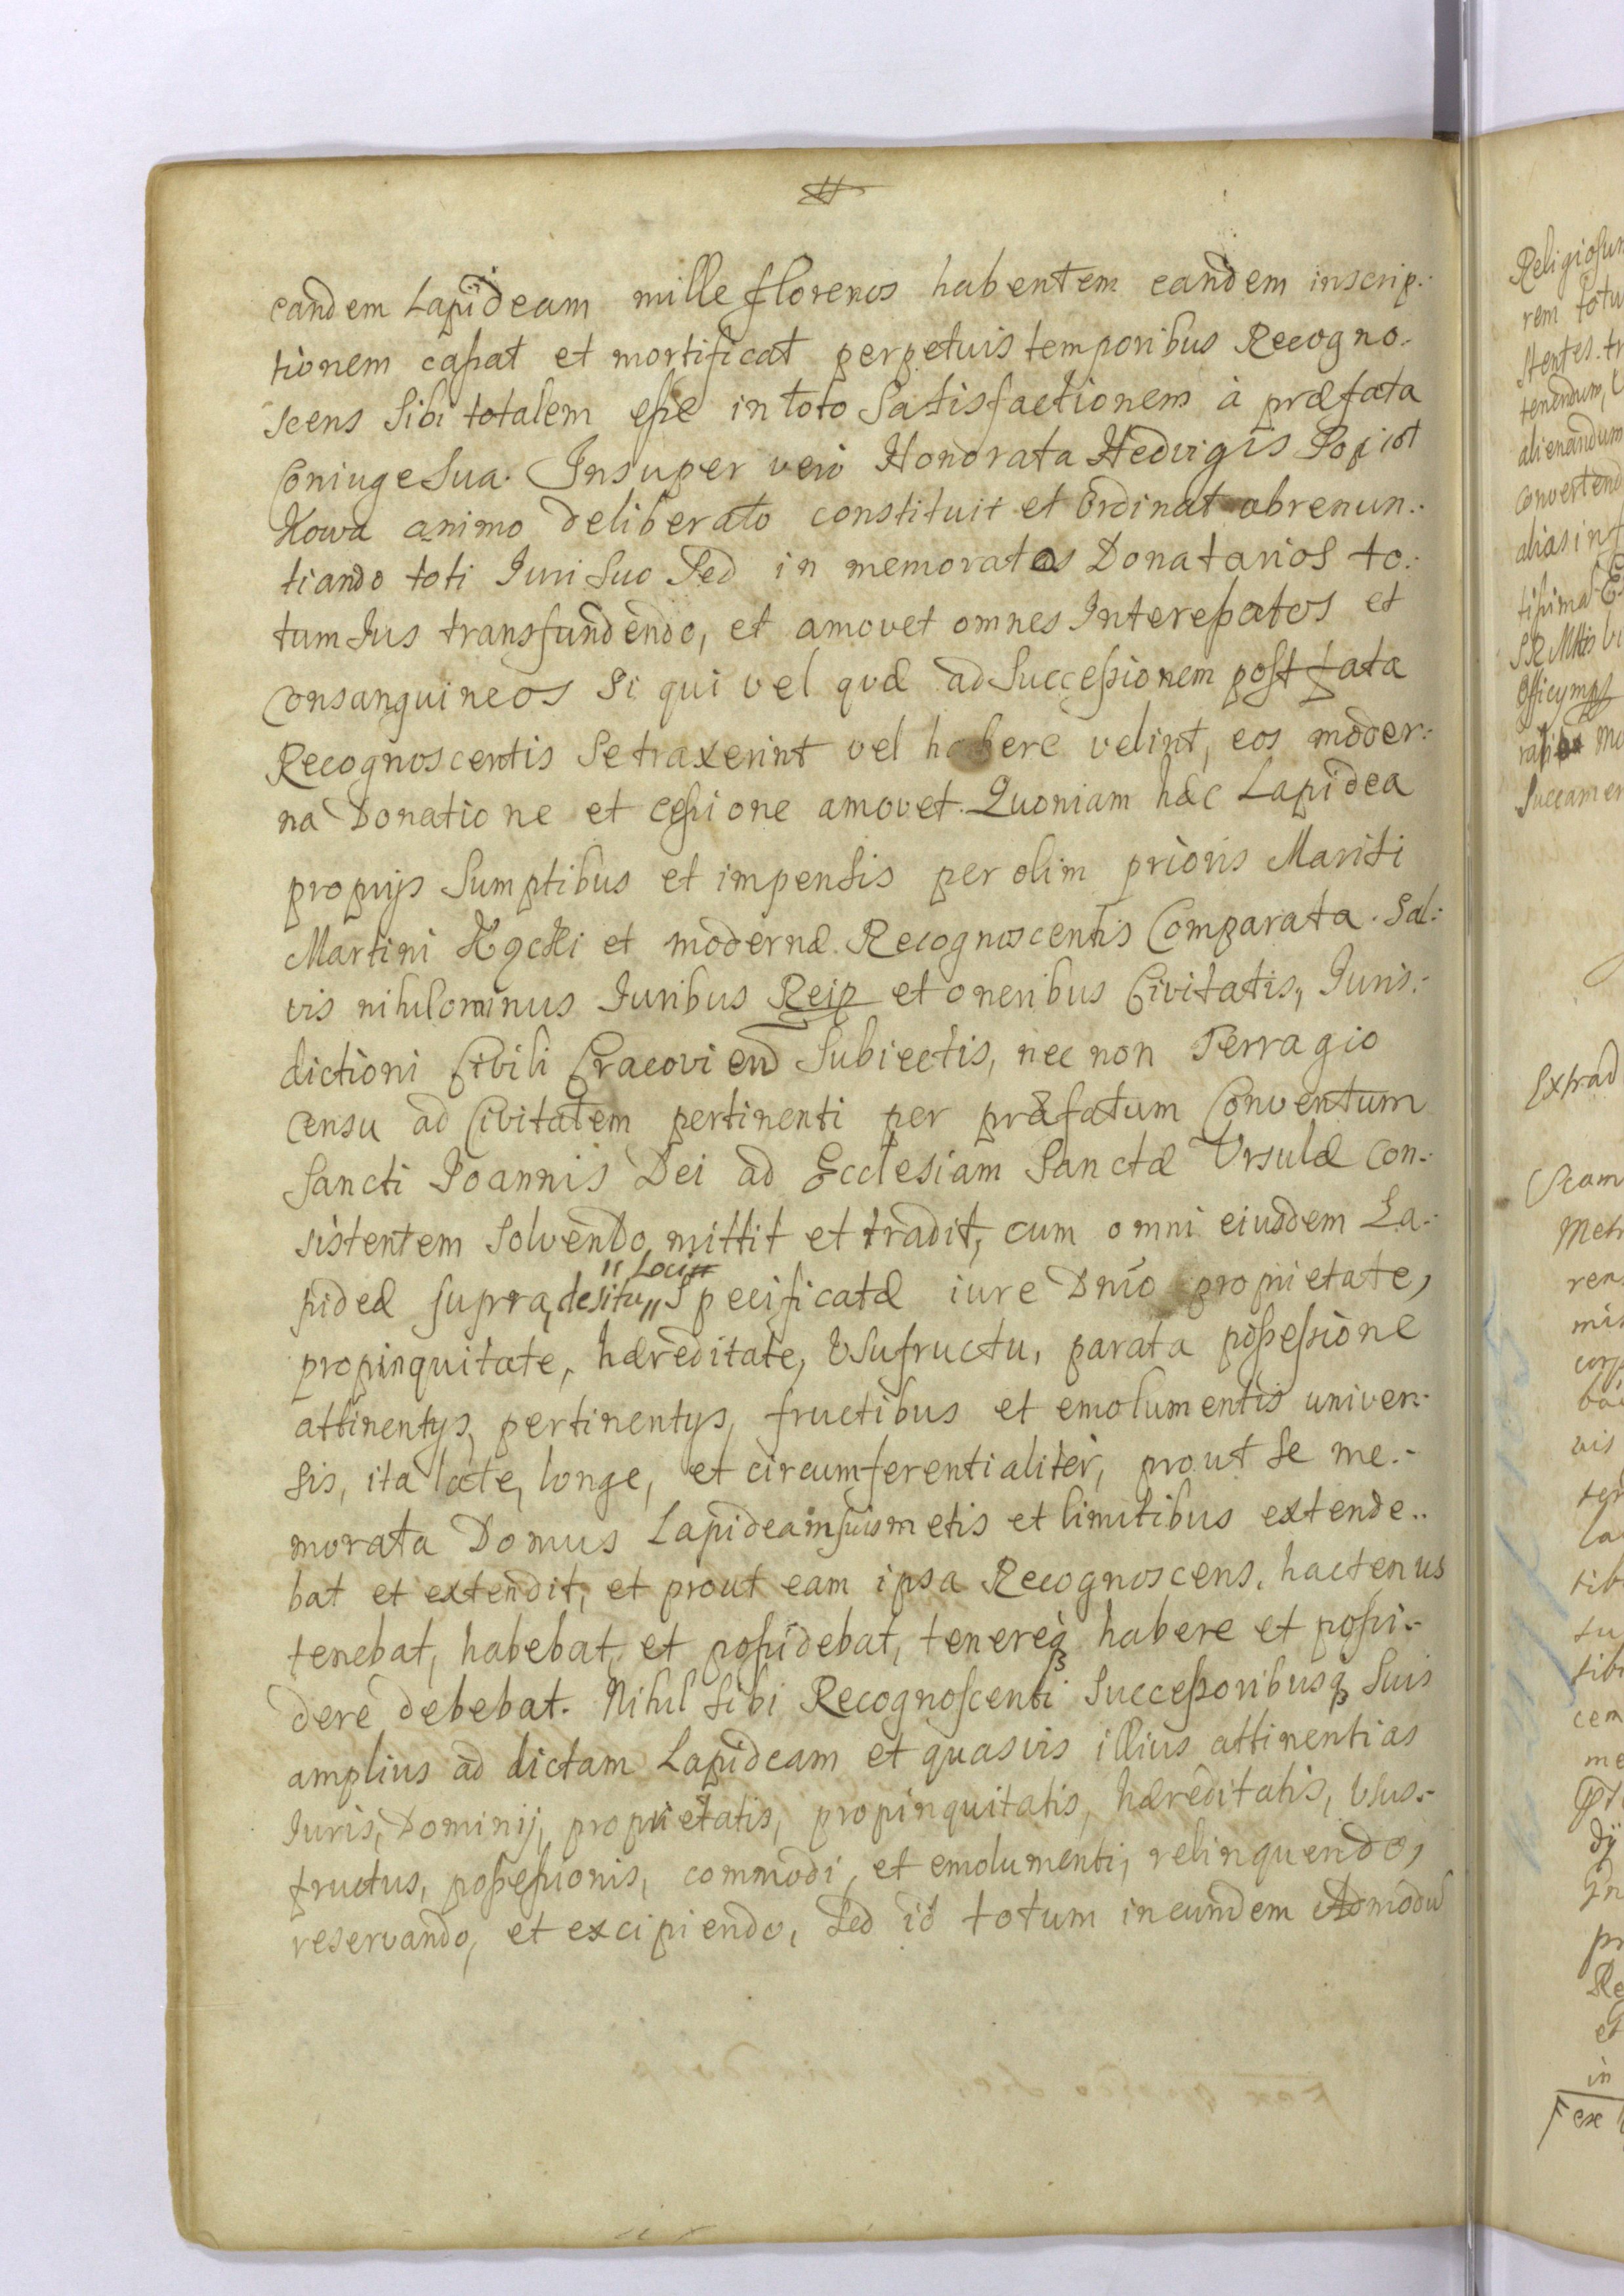 eandem Lapideam mille florenos habentem eandem inscrip:
tionem caßat et mortificat perpetuis temporibus Recogno:
scens Sibi totalem eße in toto Satisfactionem à præfata
Coniuge Sua. Insuper verò Honorata Hedvigis Popiot
Kowa animo deliberato constituit et Ordinat abrenun:
tiando toti Iuri Suo Sed in memoratos Donatarios to:
tum Ius transfundendo, et amovet omnes Intereßatos et
Consanguineos Si qui vel quæ ad Succeßionem post fata
Recognoscentis Se traxerint vel habere velint, eos moder:
na Donatione et ceßione amovet. Quoniam hæc Lapidea
proprijs Sumptibus et impensis per olim prioris Mariti
Martini et modernæ Recognoscentis Comparata. Sal:
vis nihilominus Iuribus Reip et oneribus Civitatis, Juris:
dictioni Civili Cracovien Subiectis, nec non Terragio
Censu ad Civitatem pertinenti per præfatum Conventum
Sancti Joannis Dei ad Ecclesiam Sanctæ Ursulæ Con:
sistentem Solvendo, mittit et tradit, cum omni eiusdem La:
" Loci
pideæ supra, de situ " Specificatæ iure Dnio proprietate,
propinquitate, hæreditate, Usufructu, parata poßeßione
attinentys, pertinentys, fructibus et emolumentis univer:
sis, ita late, longe, et circumferentialiter, prout Se me:
morata Domus Lapidea in suis metis et limitibus extende:
bat et extendit, et prout eam ipsa Recognoscens, hactenus
tenebat, habebat, et poßidebat, tenereq habere et poßi:
dere debebat. Nihil Sibi Recognoscenti Succeßoribusq Suis
amplius ad dictam Lapideam et quasvis illius attinentias
Iuris, Dominij, proprietatis, propinquitatis, hæreditatis, Usus:
fructus, poßeßionis, commodi, et emolumenti, relinquendo,
reservando, et excipiendo, Sed id totum in eumdem Admodu

Religiosum
rem totu
stentes tr
tenendum,
alienandum
Convertend
alias in
Extrad